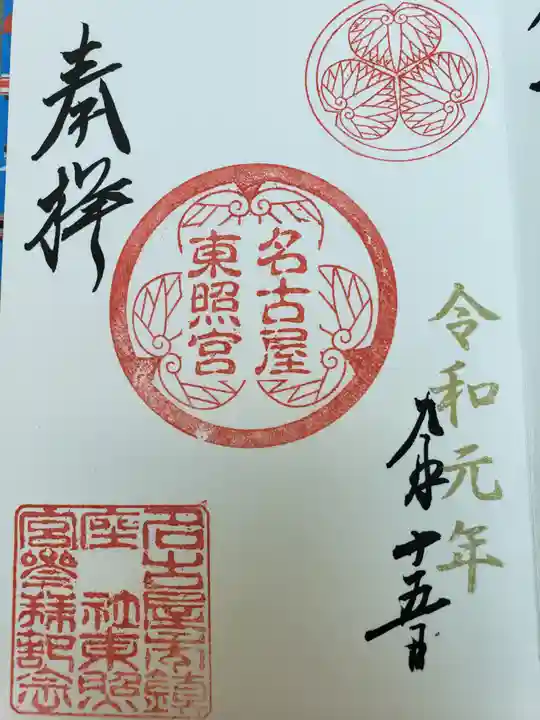 奉拝
名古屋
東照宮
令和元年
十五日
名古屋市鎮
座 社東照
宮参拝記念